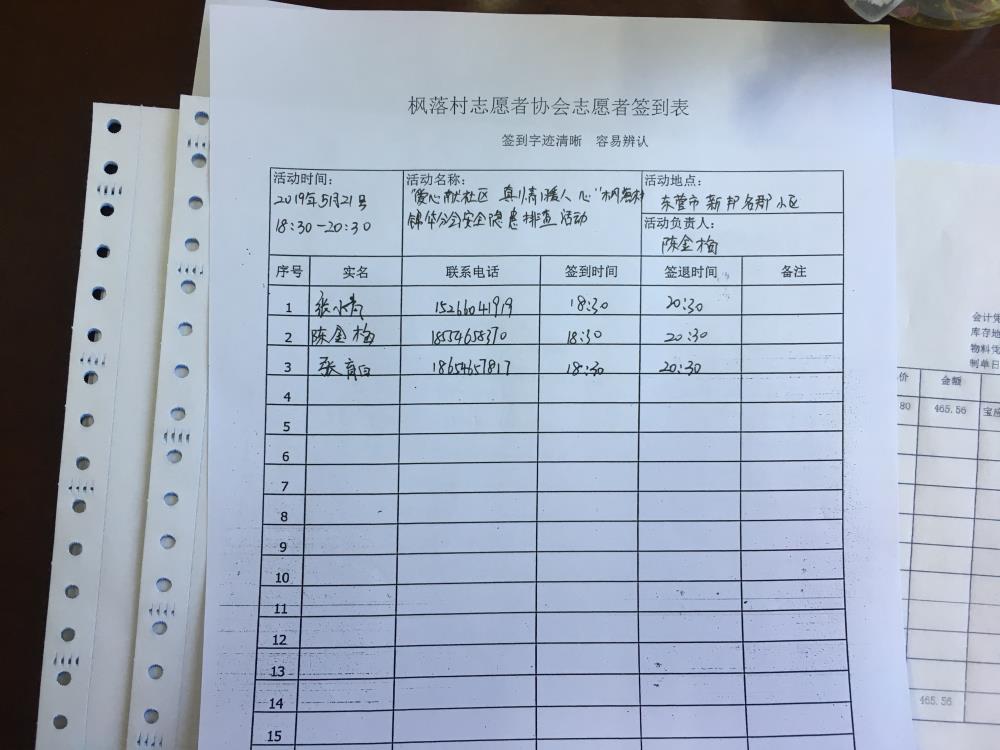 枫落村志愿者协会志愿者签到表
签到字迹清晰 容易辨认
活动时间:
2019年5月21号
18:30-20:30
活动名称:
"爱心献社区 真情暖人心"枫落村
锦华分会安全隐患排查活动
活动地点:
东营市新邦名郡小区
活动负责人:
陈金梅
序号 实名 联系电话 签到时间 签退时间 备注
1 张水青 15266041919 18:30 20:30
2 陈金梅 18554658370 18:30 20:30
3 张育白 18654657817 18:30 20:30
4
5
6
7
8
9
10
11
12
13
14
15
会计凭
库存地
物料凭
制单日
价 金额
80 465.56 宝应
465.56